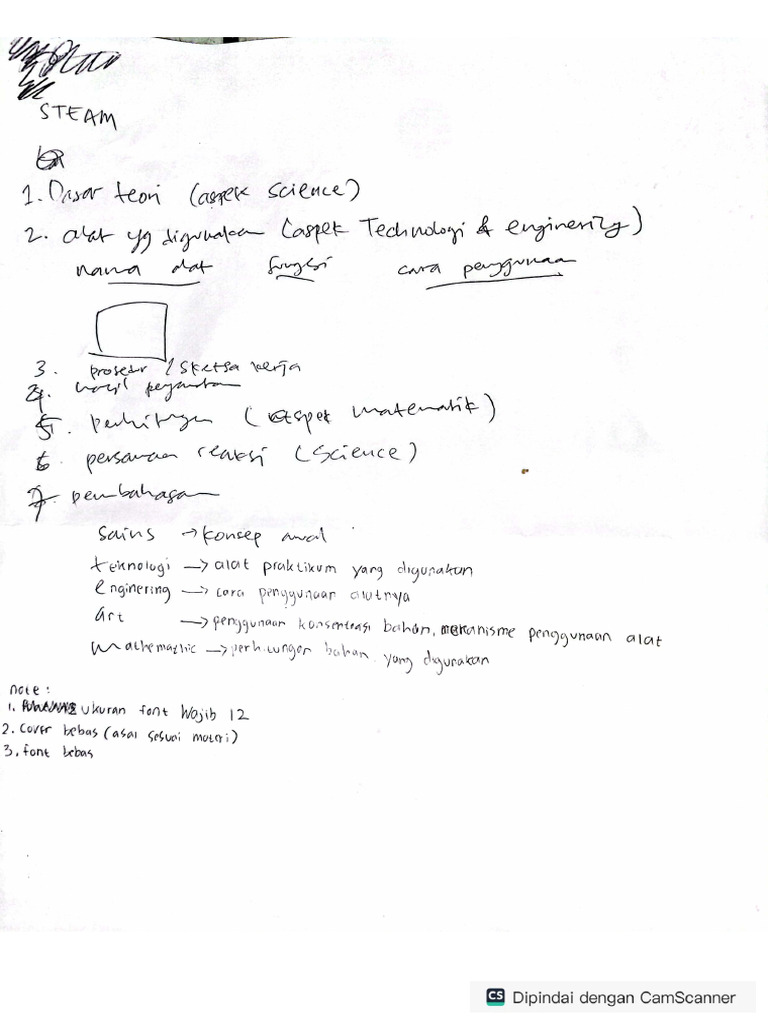 STEAM
1. Dasar teori (aspek science)
2. alat yg digunakan (aspek Technologi & enginerily)
nama alat fungsi cara penggunaan
3. prosedur / sketsa kerja
4. hasil pengamatan
5. perhitungan (aspek matematik)
6. persamaan reaksi (science)
7. pembahasan
Sains → konsep awal
teknologi → alat praktikum yang digunakan
enginering → cara penggunaan alatnya
Art → penggunaan konsentrasi bahan, mekanisme penggunaan alat
Mathemathic → perhitungan bahan yang digunakan
note :
1. ukuran font Wajib 12
2. Cover bebas (asal sesuai materi)
3. font bebas
CS Dipindai dengan CamScanner